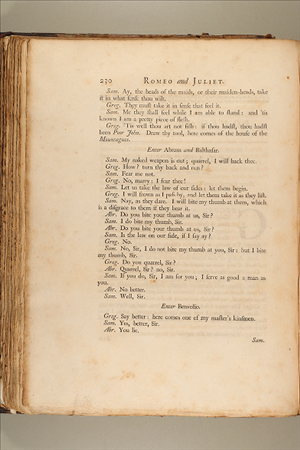 230 ROMEO and JULIET.
Sam. Ay, the heads of the maids, or their maiden-heads, take
it in what sense thou wilt.
Greg. They must take it in sense that feel it.
Sam. Me they shall feel while I am able to stand: and 'tis
known I am a pretty piece of flesh.
Greg. 'Tis well thou art not fish: if thou hadst, thou hadst
been Poor John. Draw thy tool, here comes of the house of the
Mountagues.
Enter Abram and Balthasar.
Sam. My naked weapon is out; quarrel, I will back thee.
Greg. How? turn thy back and run?
Sam. Fear me not.
Greg. No, marry: I fear thee!
Sam. Let us take the law of our sides: let them begin.
Greg. I will frown as I pass by, and let them take it as they list.
Sam. Nay, as they dare. I will bite my thumb at them, which
is a disgrace to them if they bear it.
Abr. Do you bite your thumb at us, Sir?
Sam. I do bite my thumb, Sir.
Abr. Do you bite your thumb at us, Sir?
Sam. Is the law on our side, if I say ay?
Greg. No.
Sam. No, Sir, I do not bite my thumb at you, Sir: but I bite
my thumb, Sir.
Greg. Do you quarrel, Sir?
Abr. Quarrel, Sir? no, Sir.
Sam. If you do, Sir, I am for you; I serve as good a man as
you.
Abr. No better.
Sam. Well, Sir.
Enter Benvolio.
Greg. Say better: here comes one of my master's kinsmen.
Sam. Yes, better, Sir.
Abr. You lie.
Sam.